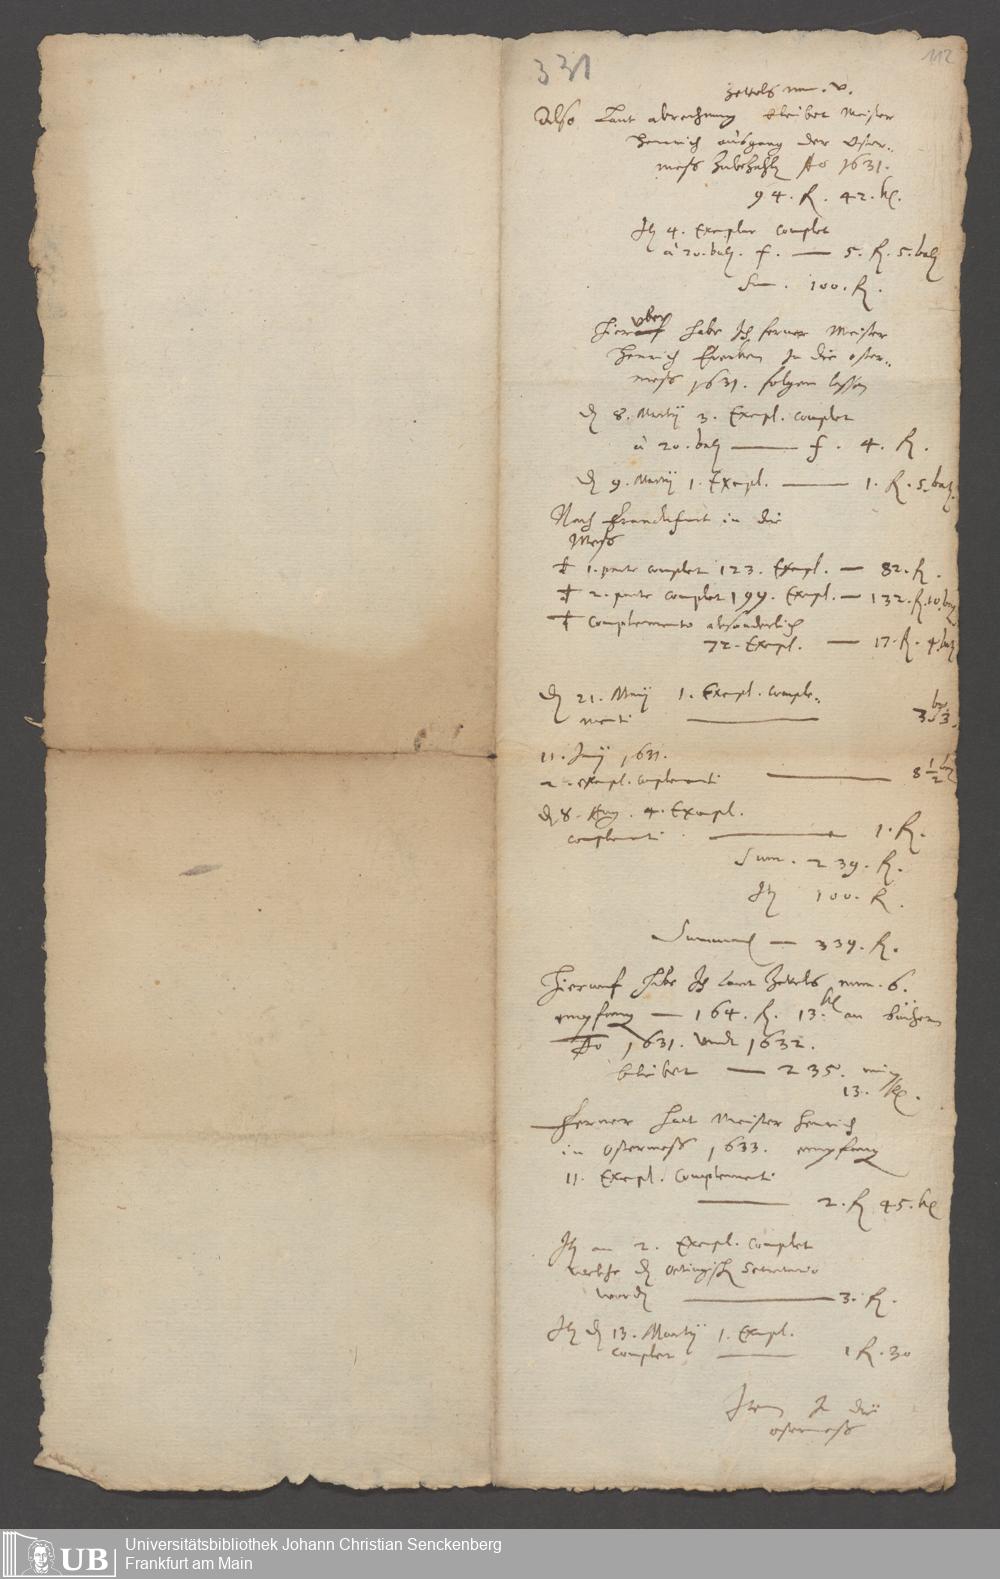 331
112
Zettels num. v.
Also Laut abrechnung bleibet Meister
Henrich außgang der Oster-
mess Zubezahlen Ao 1631.
94. fl. 42. kr.
Itm 4. Exemplar Complet
à 20. batz. f. — 5. fl. 5. batz
Sum. 100. fl.
Hierüber habe Ich ferner Meister
Henrich In die Oster-
mess 1631. folgen lassen
dn 8. Martij 3. Exempl. complet
à 20. batz — f. 4. fl.
dn 9. Martij 1. Exempl. — 1. fl. 5. batz.
Nach Franckfurt in die
Mess
1. parte complet 123. Exempl. — 82. fl.
2. parte complet 199. Exempl. — 132. fl. 10. batz
Complemento absonderlich
72. Exempl. — 17. fl. 4. batz
dn 21. Maij 1. Exempl. Comple-
menti — 3
11. Junij 1631.
2. exempl. complementi — 8 1/2
dn 8. Aug. 4. Exempl.
complementi — 1. fl.
Sum. 239. fl.
Itm 100. fl.
Summa — 339. fl.
Hierauf habe Ich laut Zettels num. 6.
empfang — 164. fl. 13. kr an büchern
Ao 1631. vndt 1632.
bleibet — 235. min
13. kr.
Ferner hat Meister Henrich
in Ostermess 1633. empfang
11. Exempl. Complementi
— 2. fl 45. kr
Itm an 2. Exempl. Complet
welche dn Oetingisch Secretario
worden — 3. fl.
Itm dn 13. Martij 1. Exempl.
complet — 1 fl. 30
Item In die
ostermess
UB
Universitätsbibliothek Johann Christian Senckenberg
Frankfurt am Main